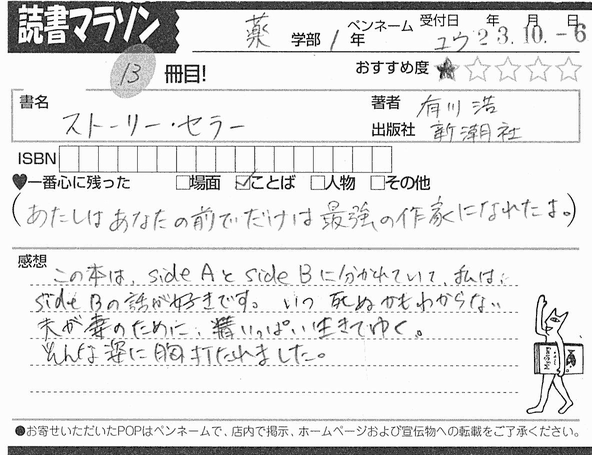 読書マラソン
薬 学部 1 年 ペンネーム ユウ 受付日 年 月 日 23.10.-6
13 冊目! おすすめ度 ★☆☆☆☆
書名 ストーリー・セラー 著者 有川浩
出版社 新潮社
ISBN
♥一番心に残った □場面 ☑ことば □人物 □その他
(あたしはあなたの前でだけは最強の作家になれたよ。)
感想
この本は、side Aとside Bに分かれていて、私は、
side Bの話が好きです。いつ死ぬかもわからない
夫が妻のために、精いっぱい生きてゆく。
そんな姿に胸打たれました。
●お寄せいただいたPOPはペンネームで、店内で掲示、ホームページおよび宣伝物への転載をご了承ください。